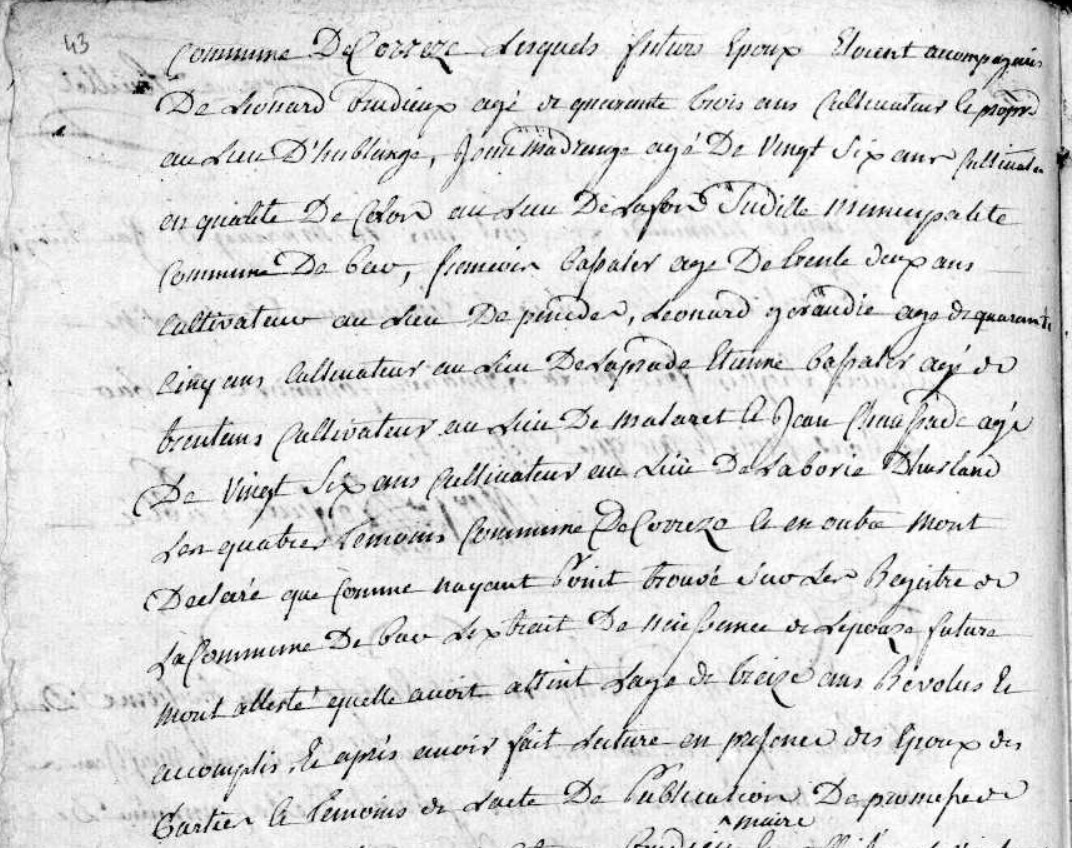 43
Commune De Correze Lesquels futurs Epoux Etoient accompagnés
De Leonard Eudieux agé de quarante trois ans Cultivateur le
au Lieu D'hublange, madrange agé De Vingt Six ans Cultivateur
en qualité De Colon au Lieu De Lafon municipalite
Commune De bar, bassaler age De trente deux ans
Cultivateur au Lieu De, Leonard geraudie age de quarante
Cinq ans Cultivateur au Lieu De Laprade Etienne bassaler agé de
trentans Cultivateur au Lieu De malaret et Jean Chaussade agé
De Vingt Six ans Cultivateur au Lieu De Laborie
Les quatres Temoins Commune De Correze et en outre mont
Declaré que Comme nayant Point trouvé sur Les Registre de
La Commune De bar Lextrait De naissance de Lepouze future
mont attesté quelle avoit attint Lage de treize ans Revolus et
accomplis, et après avoir fait Lecture en presence des Epoux des
Parties et Temoins de Lacte De Publication De promesse de
maire